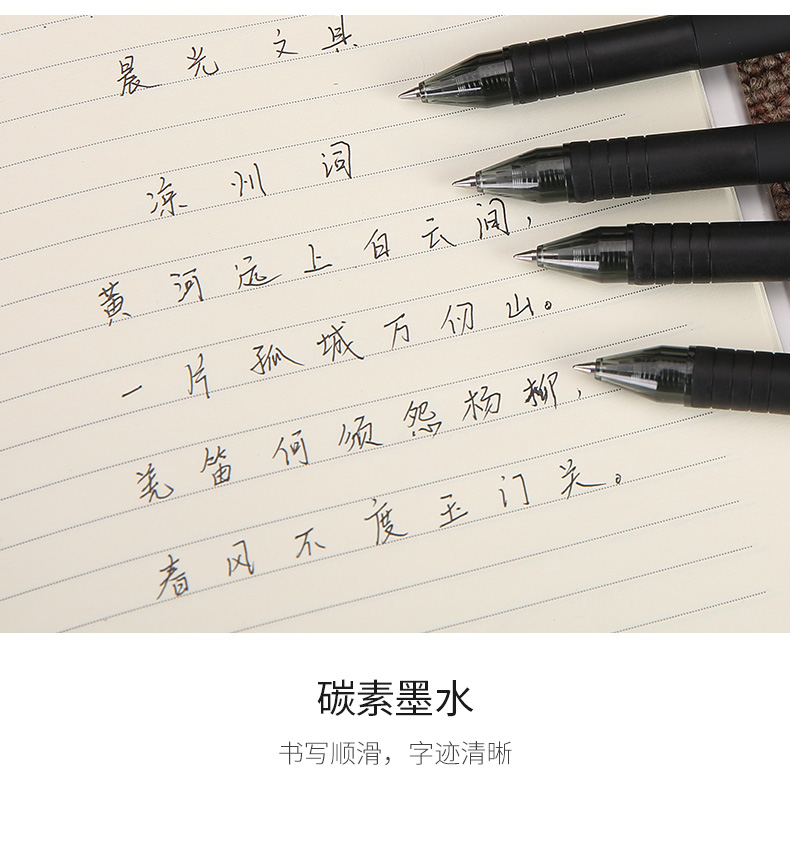 晨光文具
凉州词
黄河远上白云间，
一片孤城万仞山。
羌笛何须怨杨柳，
春风不度玉门关。
碳素墨水
书写顺滑，字迹清晰